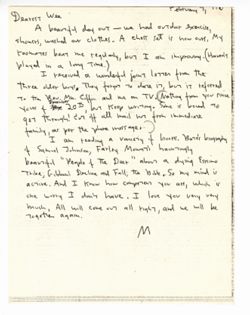 February 7, 
Dearest Wee
A beautiful day out — we had outdoor exercise,
showers, washed our clothes. A chess set is now ours. My
roommates beat me regularly, but I am improving. (Haven't
played in a long time.)
I received a wonderful joint letter from the
three older boys. They forgot to date it, but it referred
to the Rev. Mr. Coffin and me on TV.
but keep writing. One is bound to
get through! Cut off all had been from immediate
family, as per the phone message.
I am reading a variety of books. Boswell's biography
of Samuel Johnson, Farley Mowat's hauntingly
beautiful "People of the Deer" about a dying Eskimo
Tribe, Gibbon's Decline and Fall, the Bible. So my mind is
active. And I know how competent you are, which is
one worry I don't have. I love you very very
much. All will come out all right, and we will be
together again.
M